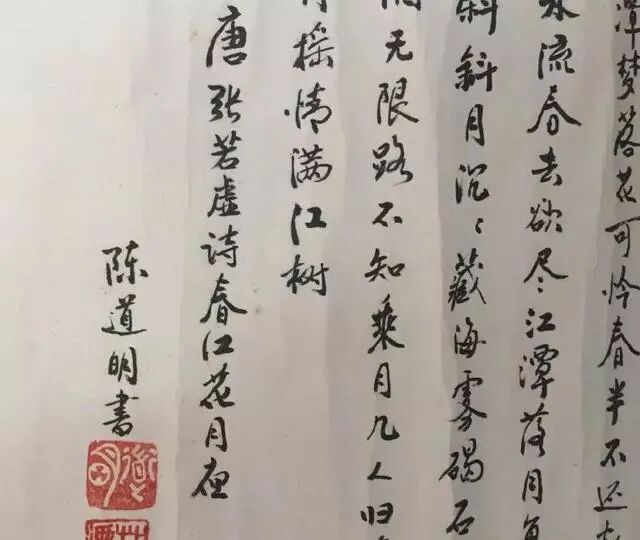 潭梦落花可怜春半不还
水流春去欲尽江潭落月
斜斜月沉〻藏海雾碣石
无限路不知乘月几人归
摇情满江树
唐张若虚诗春江花月夜
陈道明书